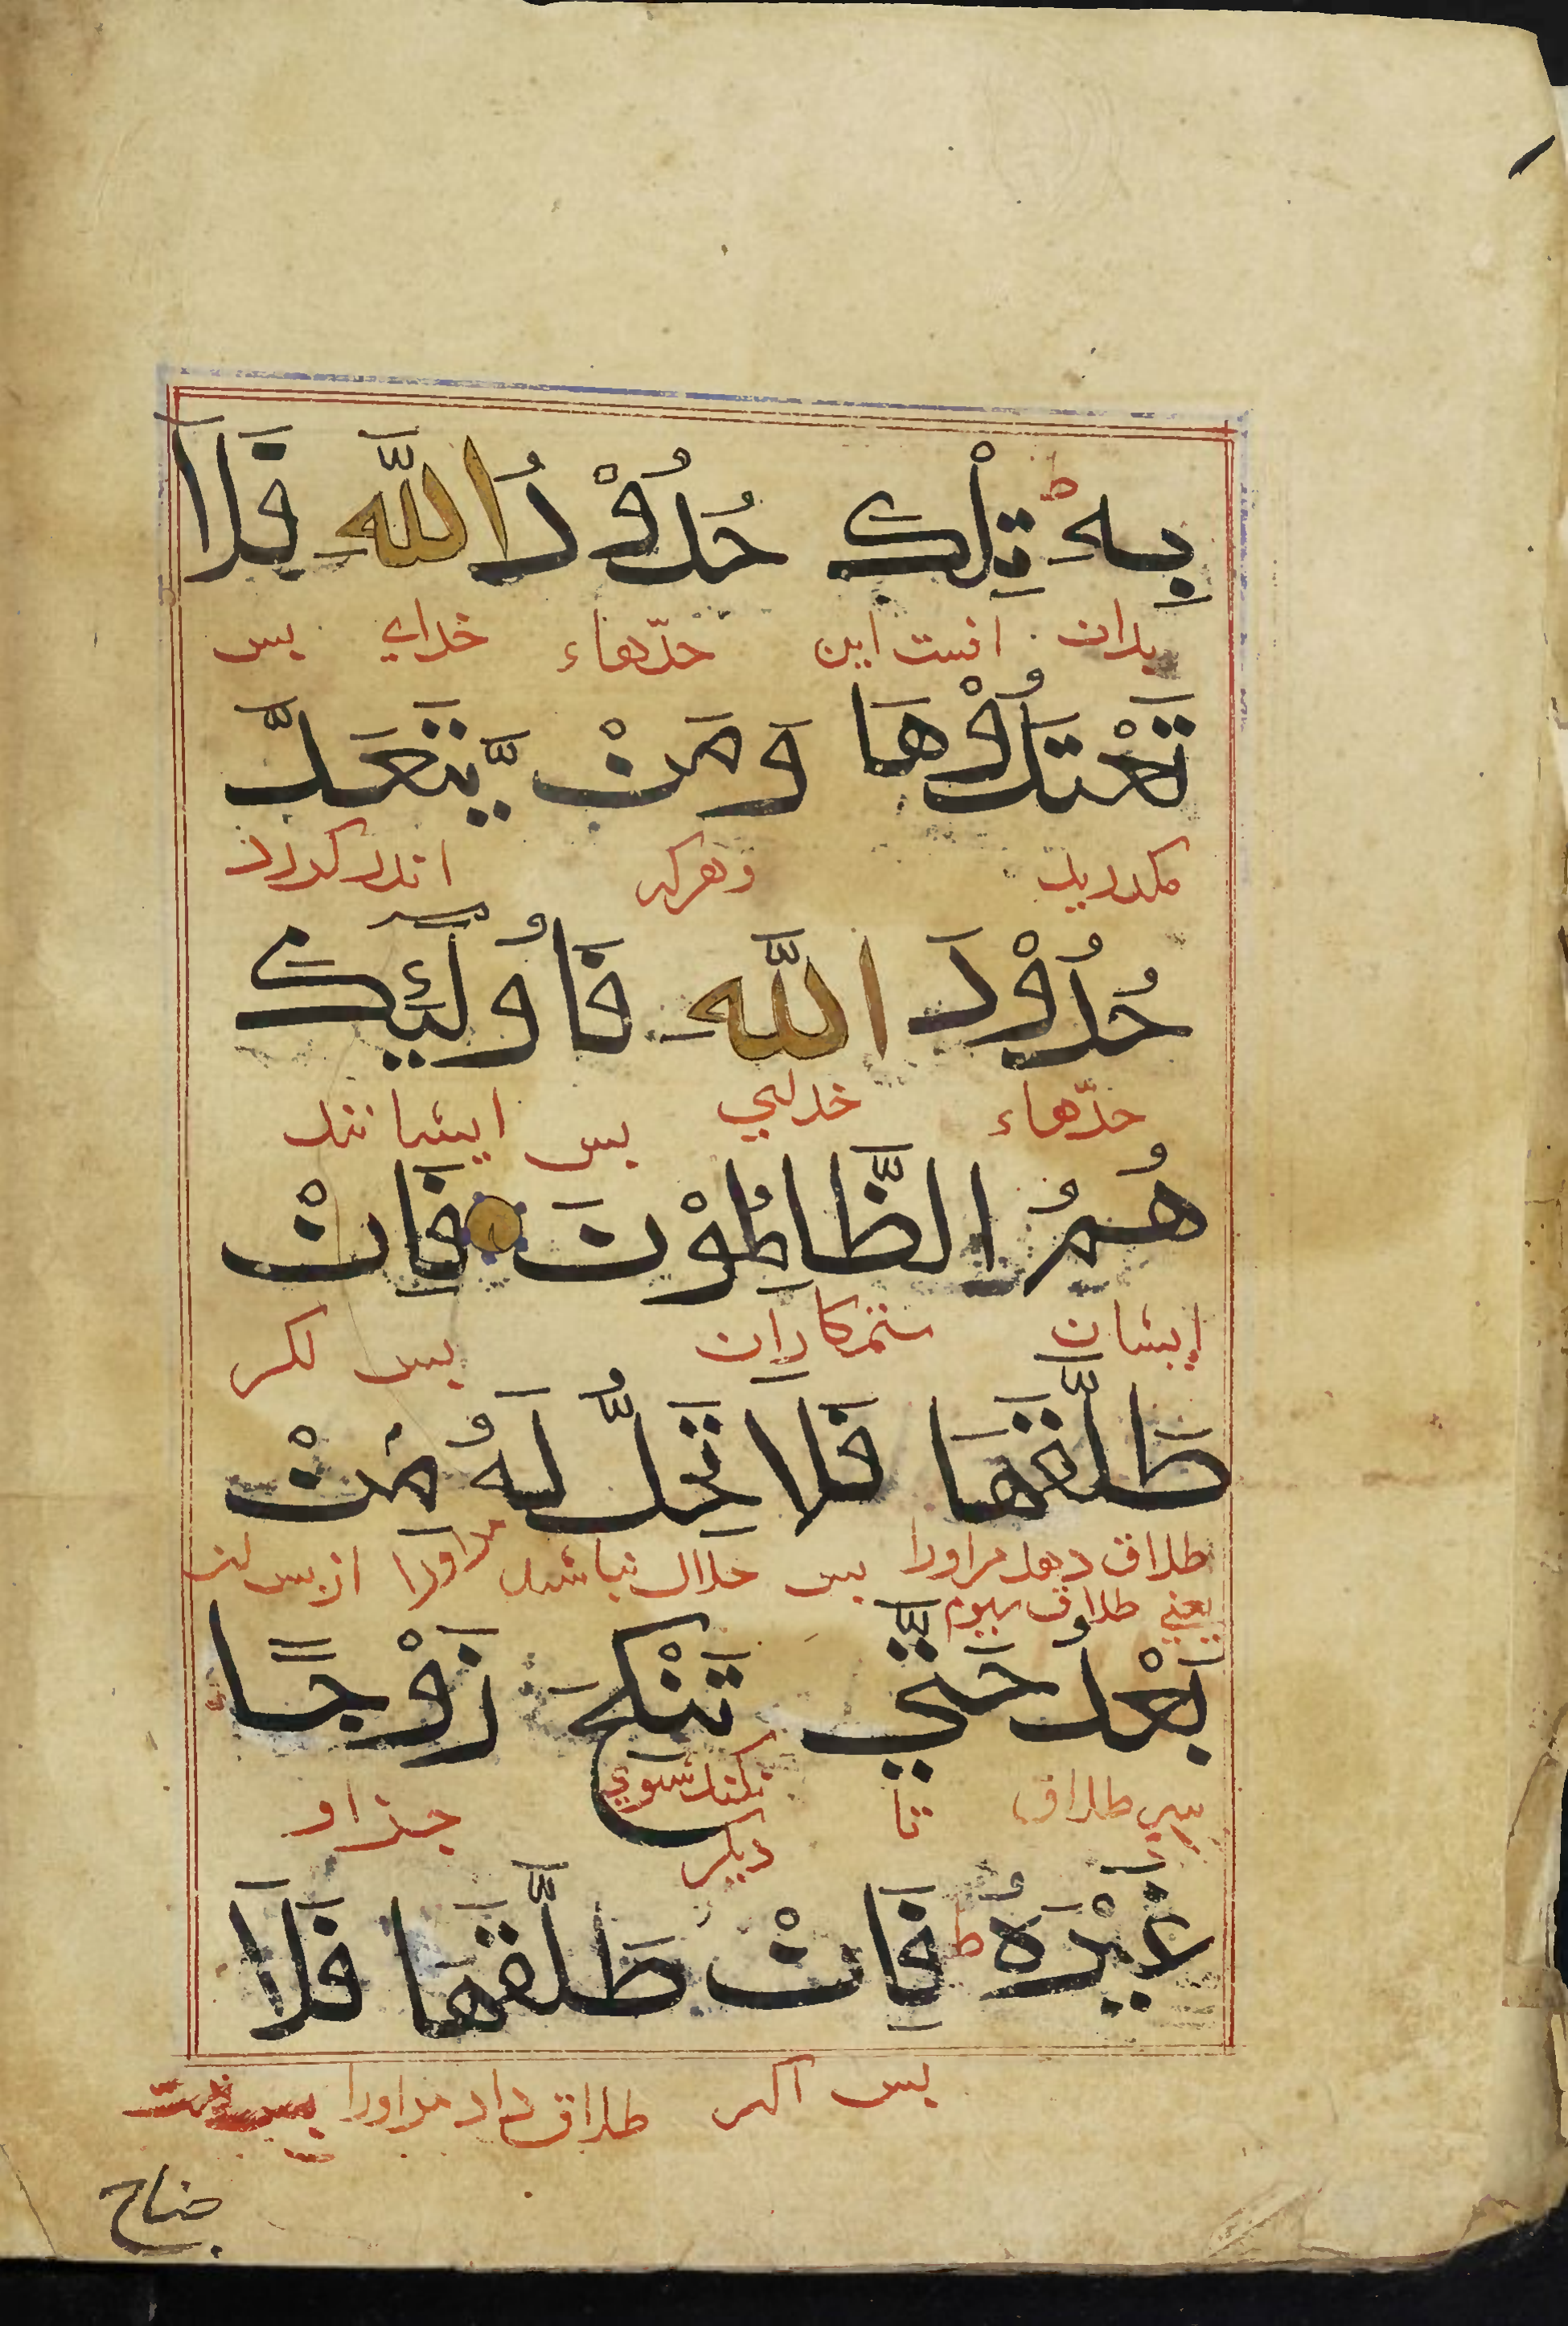 بِهٖ ط تِلْكَ حُدُوْدُ اللّٰهِ فَلَا
بدان افست این حدّهاء خدای بس
تَعْتَدُوْهَا وَمَنْ يَّتَعَدَّ
مكدريد وهركه اندر كدرد
حُدُوْدَ اللّٰهِ فَاُولٰٓئِكَ
حدّهاء خدای بس ایشانند
هُمُ الظَّالِمُوْنَ فَاِنْ
ایشان ستمكاران بس اكر
طَلَّقَهَا فَلَا تَحِلُّ لَهُ مِنْ
طلاق دهد مراورا بس حلال نباشد مراورا از بس
یعنی طلاق سیوم
بَعْدُ حَتّٰي تَنْكِحَ زَوْجًا
سی طلاق تا نكند شوی جذ او
دیكر
غَيْرَهُ ط فَاِنْ طَلَّقَهَا فَلَا
بس اكر طلاق داد مراورا بس
جناح